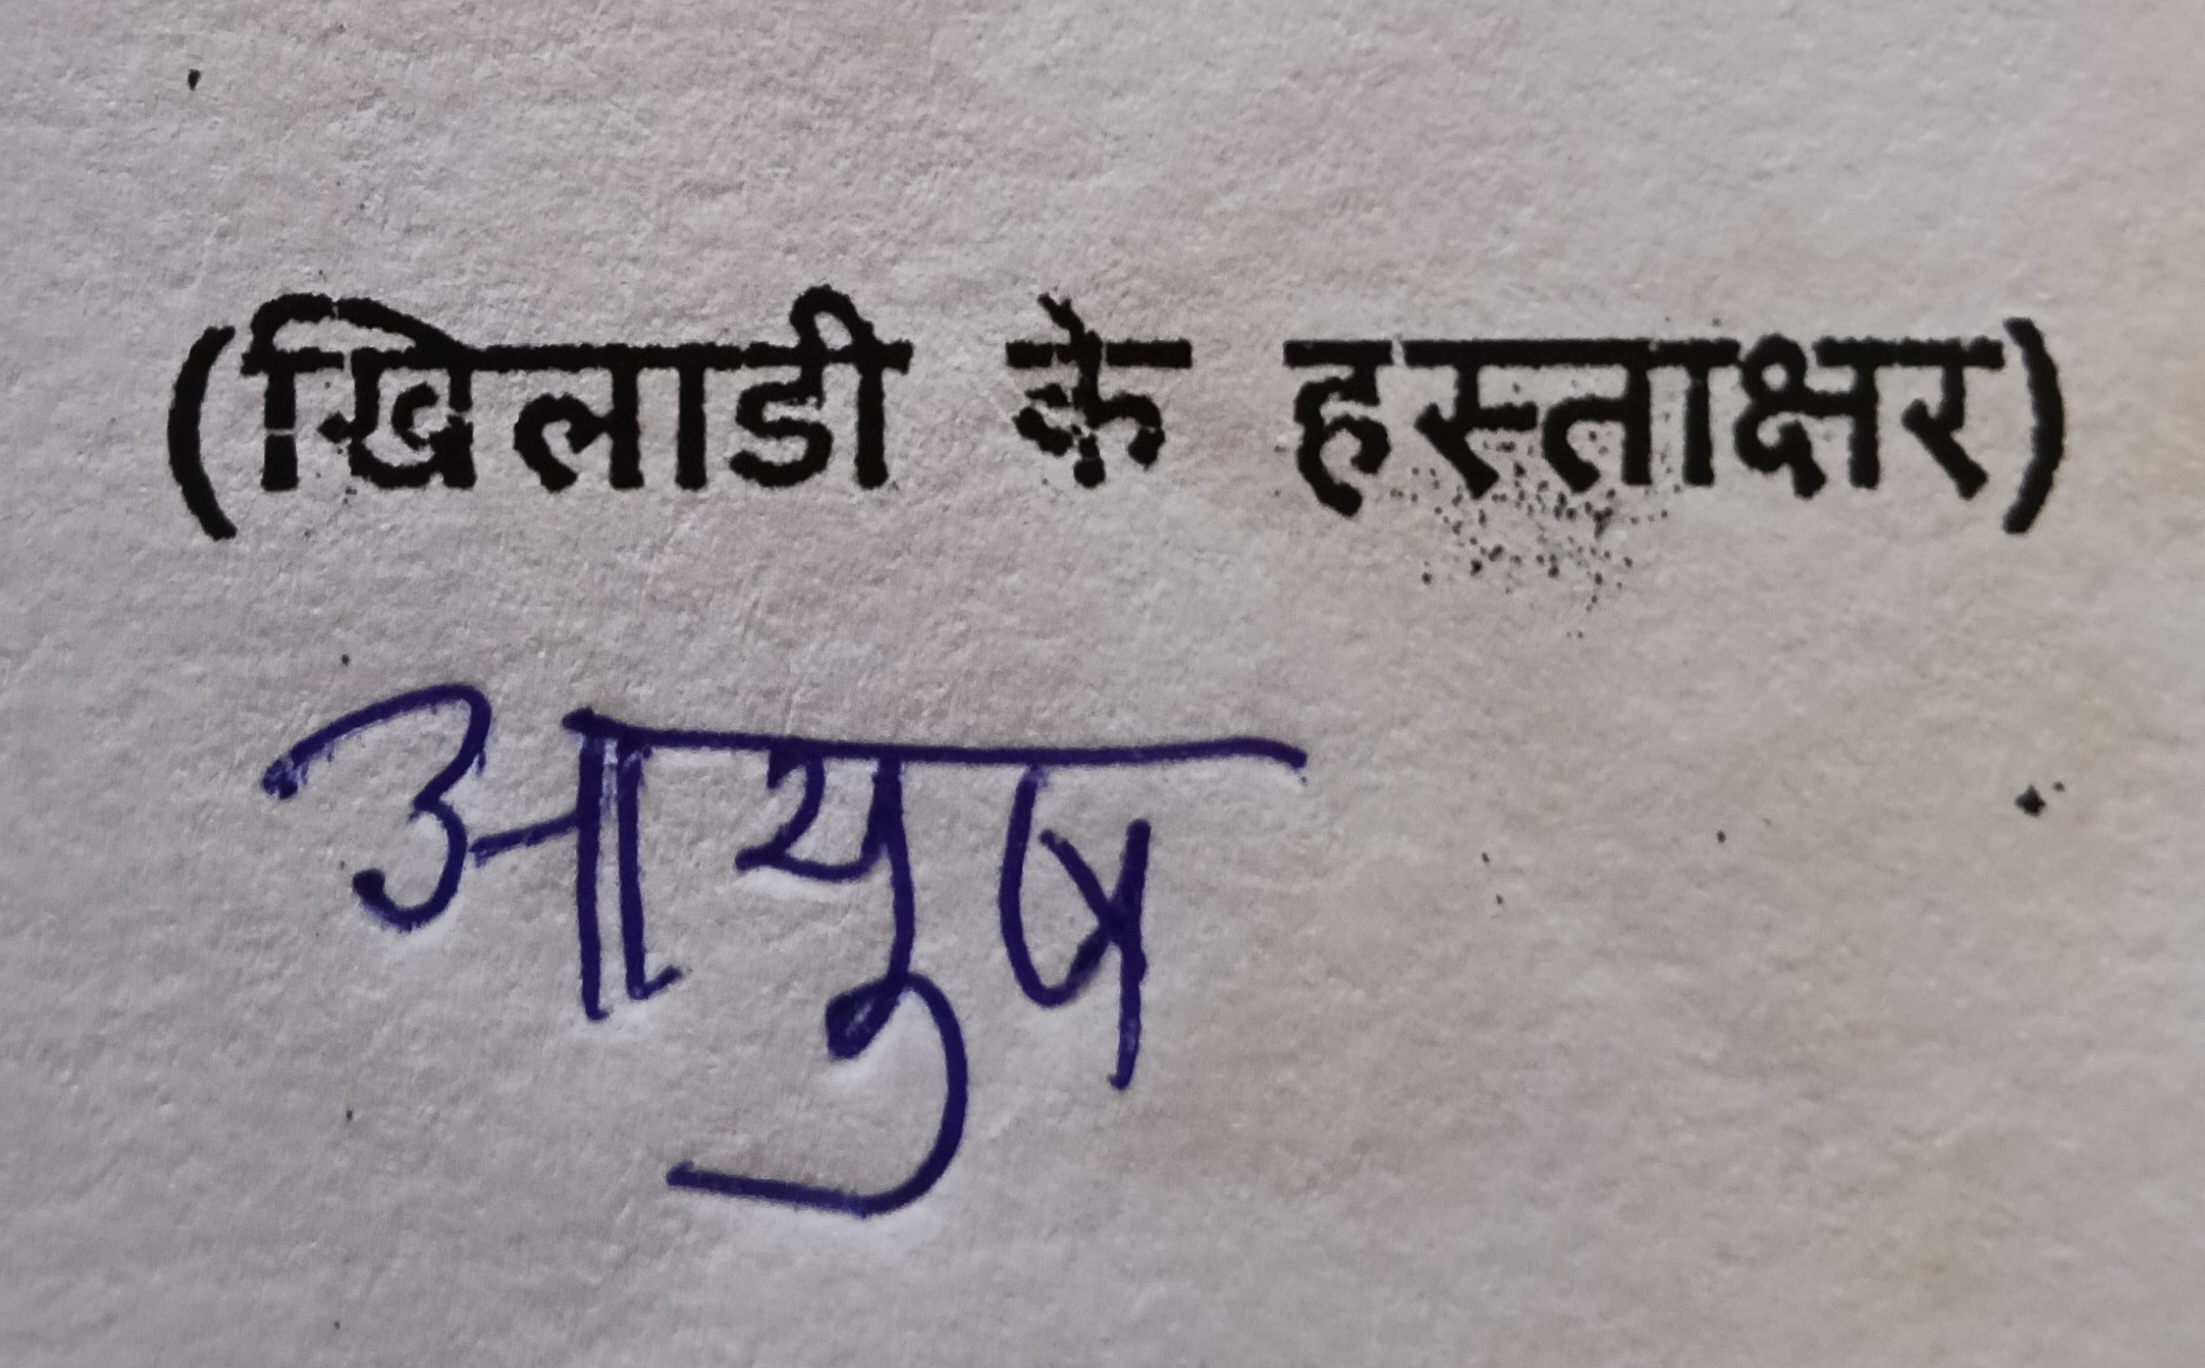 (खिलाडी के हस्ताक्षर)
आयुष